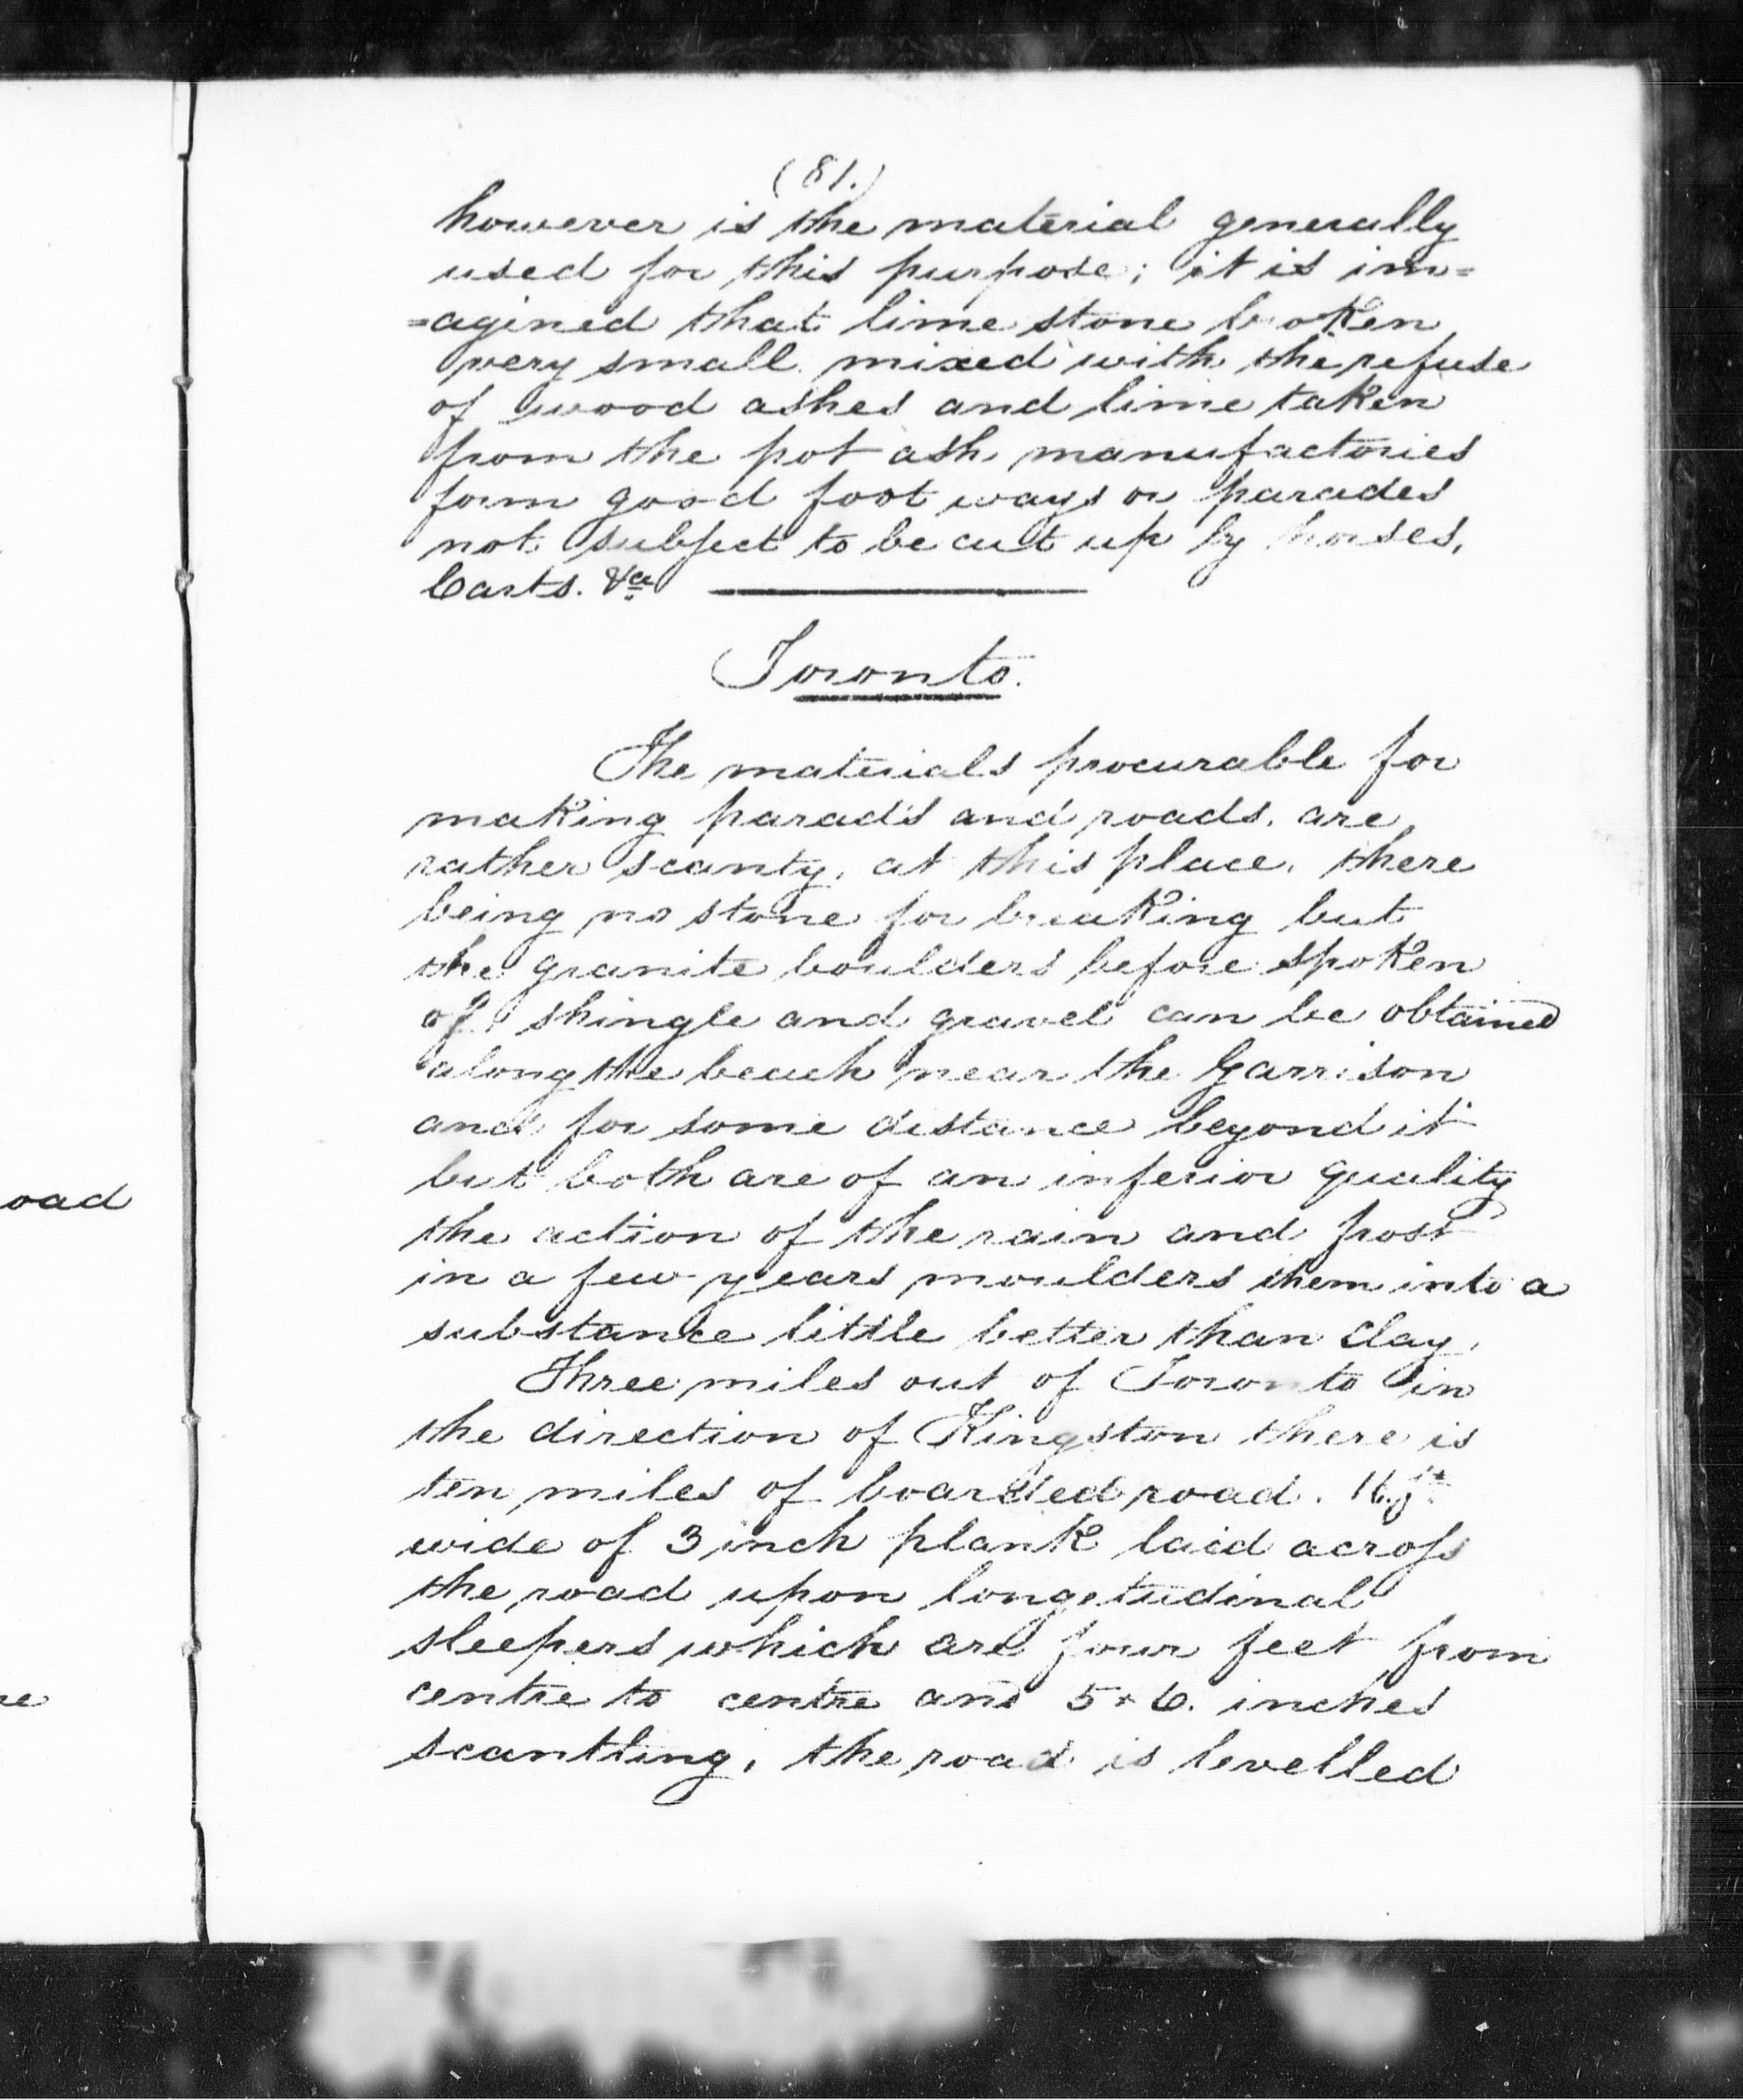 (81.)
however is the material generally
used for this purpose; it is im=
=agined that lime stone broken
very small mixed with the refuse
of wood ashes and lime taken
from the pot ash manufactories
form good foot ways or parades
not subject to be cut up by horses,
Carts. &ca
Toronto.
The materials procurable for
making parad's and roads, are
rather scanty, at this place, there
being no stone for breaking but
the granite boulders before spoken
of, shingle and gravel can be obtained
along the beach near the Garrison
and for some distance beyond it
but both are of an inferior quality
the action of the rain and frost
in a few years moulders them into a
substance little better than clay.
Three miles out of Toronto in
the direction of Kingston there is
ten miles of boarded road. 16 ft
wide of 3 inch plank laid across
the road upon longetudinal
sleepers which are four feet from
centre to centre and 5 x 6. inches
scantling, the road is levelled
oad